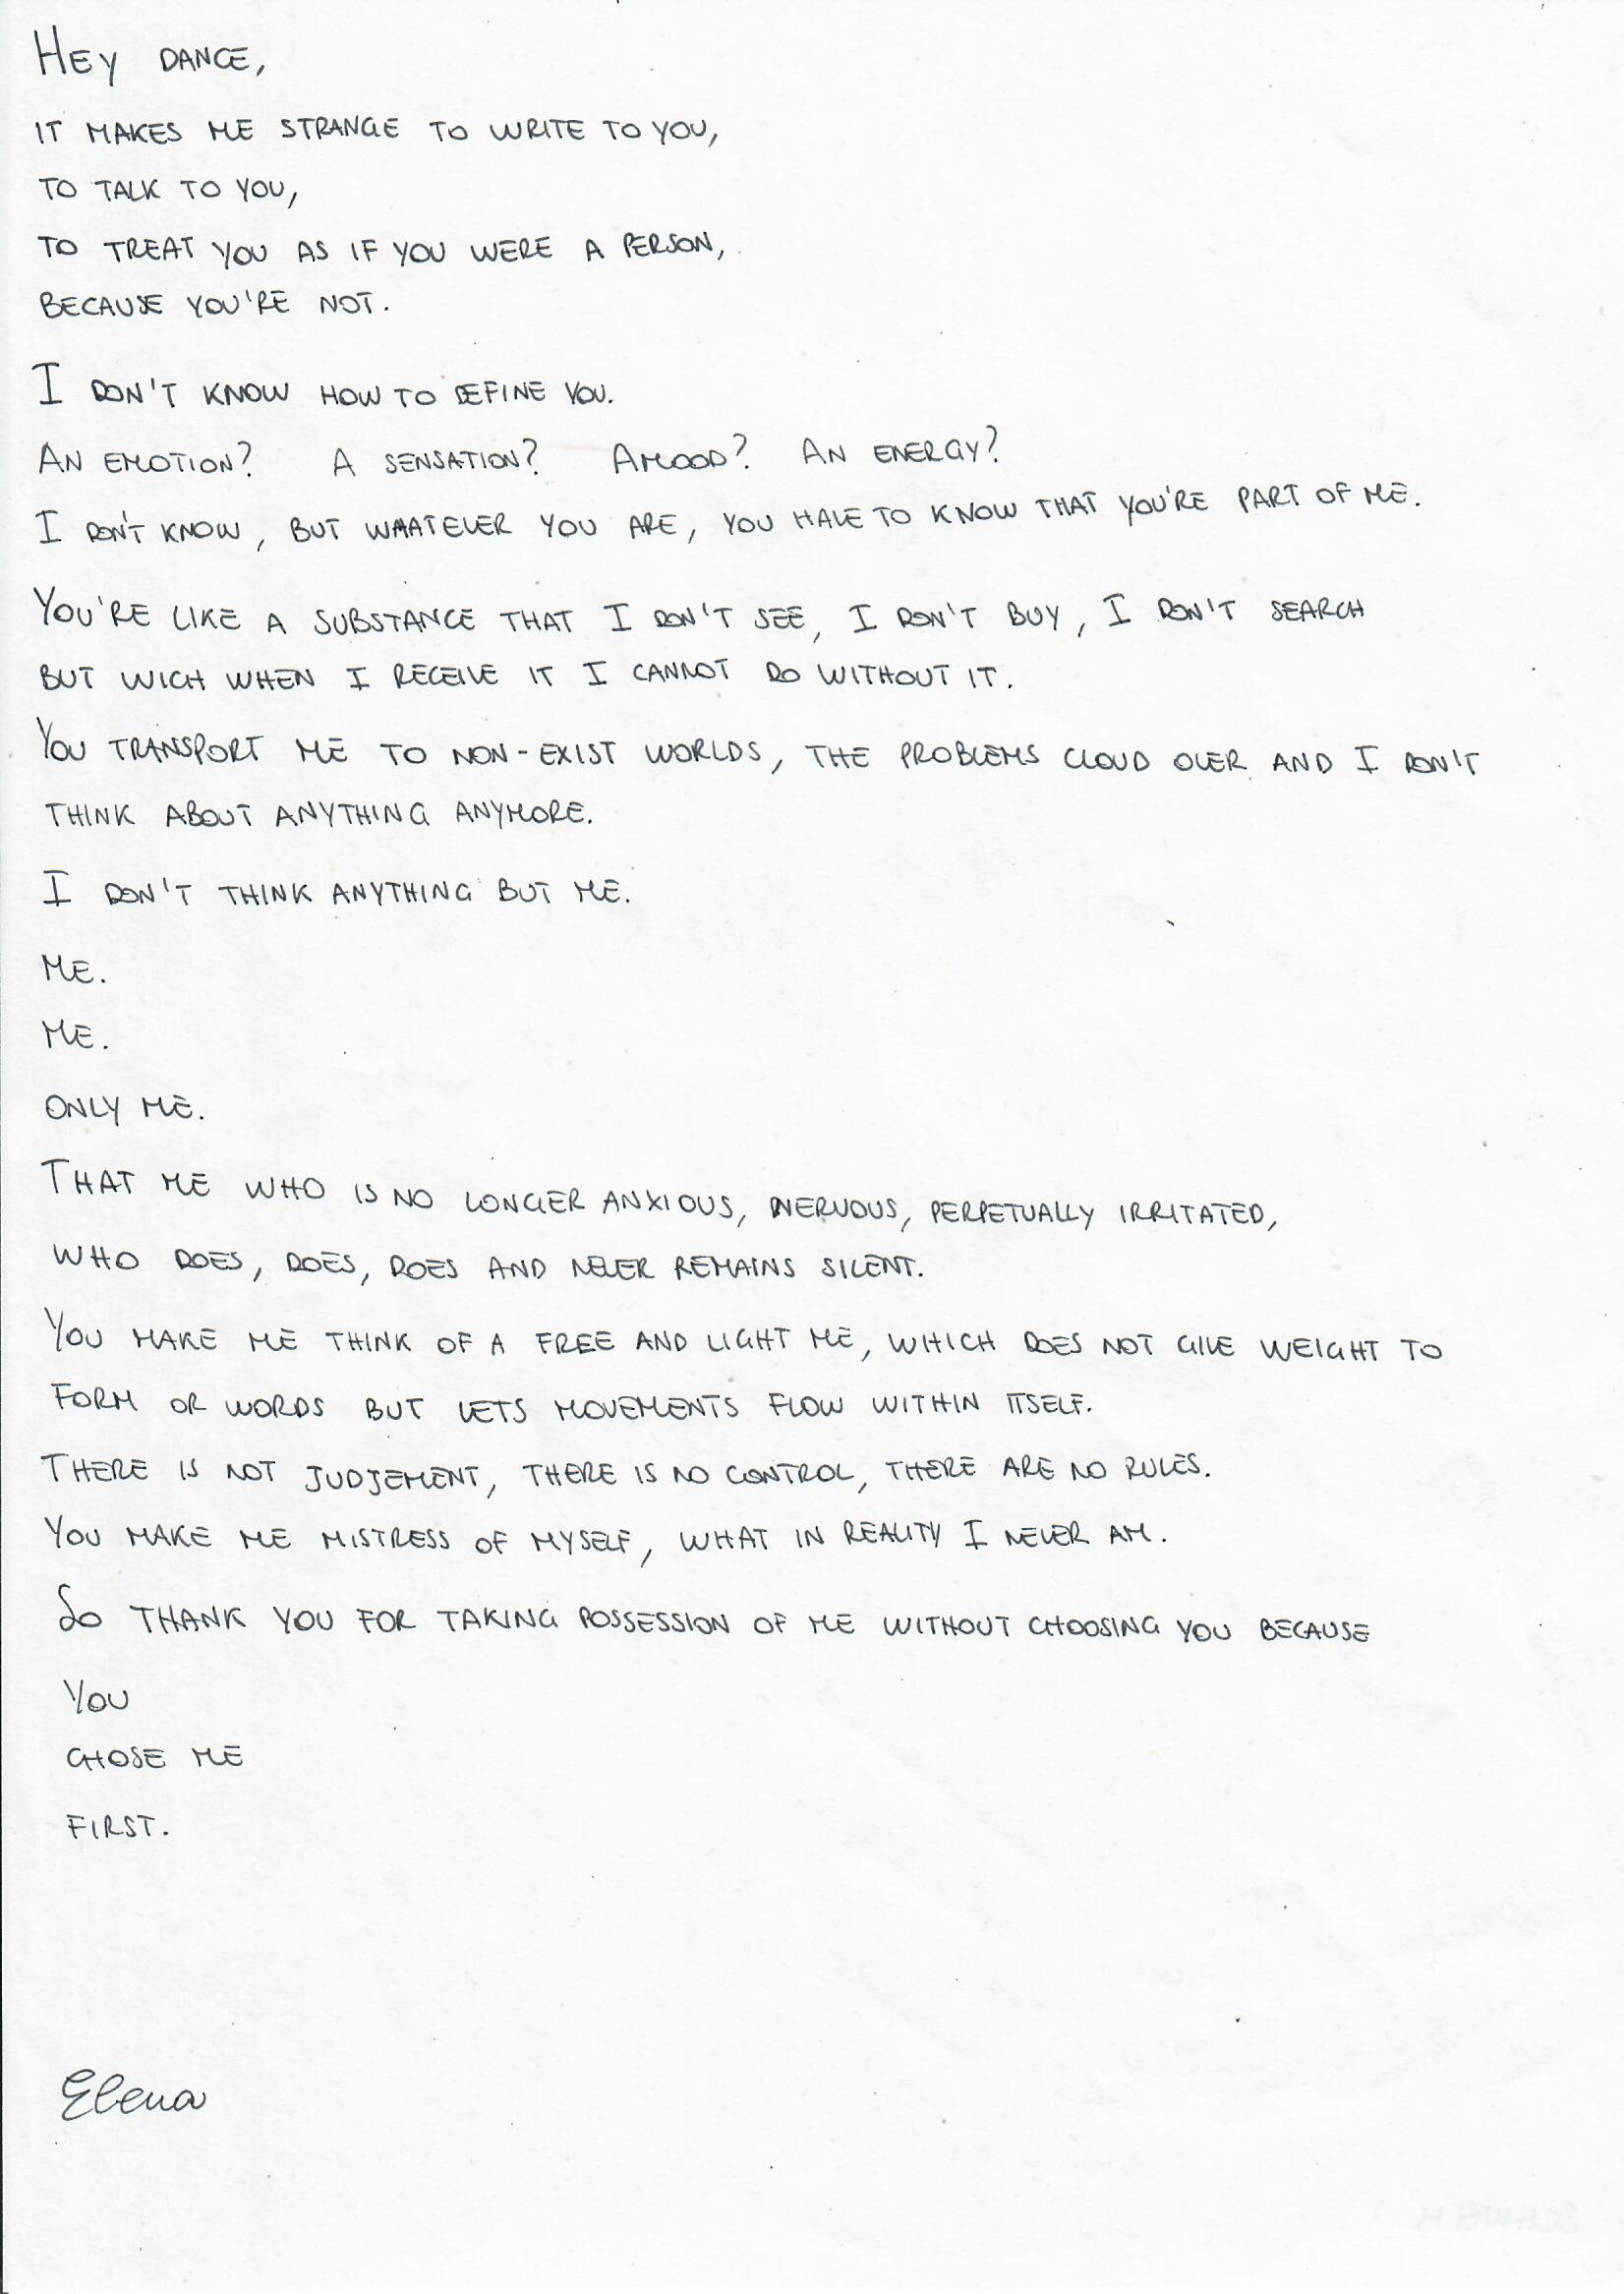 HEY DANCE,
IT MAKES ME STRANGE TO WRITE TO YOU,
TO TALK TO YOU,
TO TREAT YOU AS IF YOU WERE A PERSON,
BECAUSE YOU'RE NOT.
I DON'T KNOW HOW TO DEFINE YOU.
AN EMOTION? A SENSATION? A MOOD? AN ENERGY?
I DON'T KNOW, BUT WHATEVER YOU ARE, YOU HAVE TO KNOW THAT YOU'RE PART OF ME.
YOU'RE LIKE A SUBSTANCE THAT I DON'T SEE, I DON'T BUY, I DON'T SEARCH
BUT WICH WHEN I RECEIVE IT I CANNOT DO WITHOUT IT.
YOU TRANSPORT ME TO NON-EXIST WORLDS, THE PROBLEMS CLOUD OVER AND I DON'T
THINK ABOUT ANYTHING ANYMORE.
I DON'T THINK ANYTHING BUT ME.
ME.
ME.
ONLY ME.
THAT ME WHO IS NO LONGER ANXIOUS, NERVOUS, PERPETUALLY IRRITATED,
WHO DOES, DOES, DOES AND NEVER REMAINS SILENT.
YOU MAKE ME THINK OF A FREE AND LIGHT ME, WHICH DOES NOT GIVE WEIGHT TO
FORM OR WORDS BUT LETS MOVEMENTS FLOW WITHIN ITSELF.
THERE IS NOT JUDJEMENT, THERE IS NO CONTROL, THERE ARE NO RULES.
YOU MAKE ME MISTRESS OF MYSELF, WHAT IN REALITY I NEVER AM.
SO THANK YOU FOR TAKING POSSESSION OF ME WITHOUT CHOOSING YOU BECAUSE
YOU
CHOSE ME
FIRST.
Elena